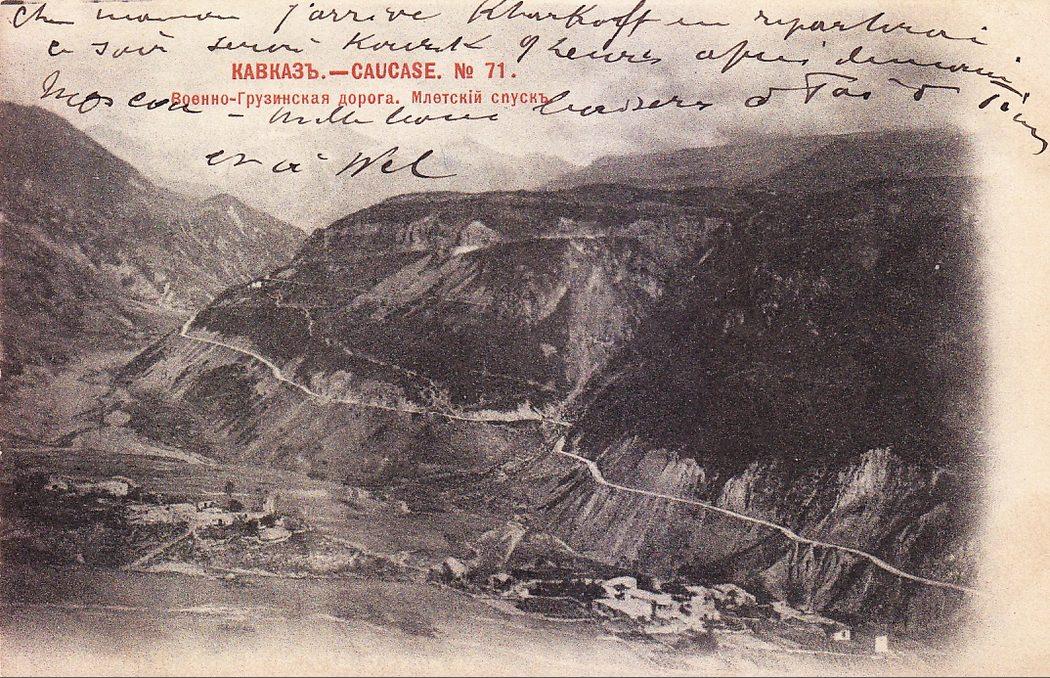 Ch maman j'arrive Kharkoff en repartirai
ce soir serai Koursk 9 heures après demain
КАВКАЗЪ.—CAUCASE. № 71.
Военно-Грузинская дорога. Млетскій спускъ
Moscou - mille bons baisers à
et à Wel